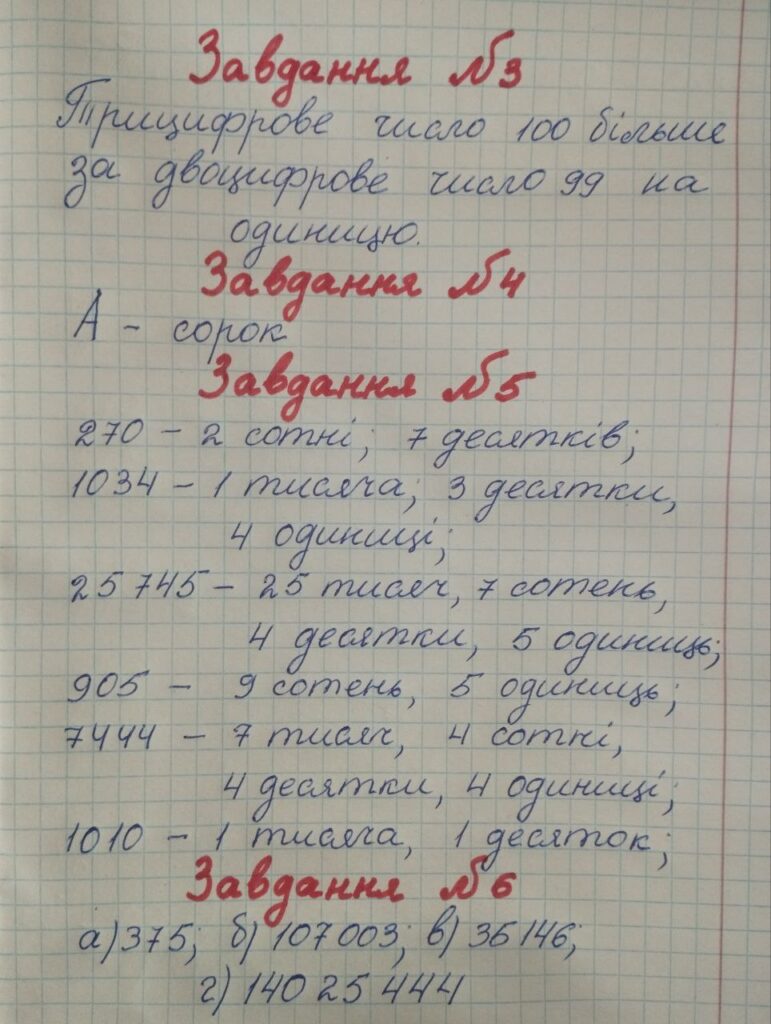 Завдання №3
Трицифрове число 100 більше
за двоцифрове число 99 на
одиницю.
Завдання №4
А - сорок
Завдання №5
270 - 2 сотні; 7 десятків;
1034 - 1 тисяча; 3 десятки,
4 одиниці;
25 745 - 25 тисяч, 7 сотень,
4 десятки, 5 одиниць;
905 - 9 сотень, 5 одиниць;
7444 - 7 тисяч, 4 сотні,
4 десятки, 4 одиниці;
1010 - 1 тисяча, 1 десяток;
Завдання №6
а) 375; б) 107 003; в) 36 146;
г) 140 25 444